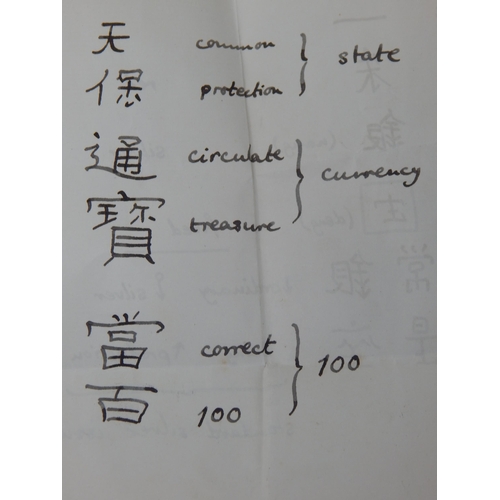 天 common
state
保 protection
通 circulate
currency
寳 treasure
當 correct
100
百 100